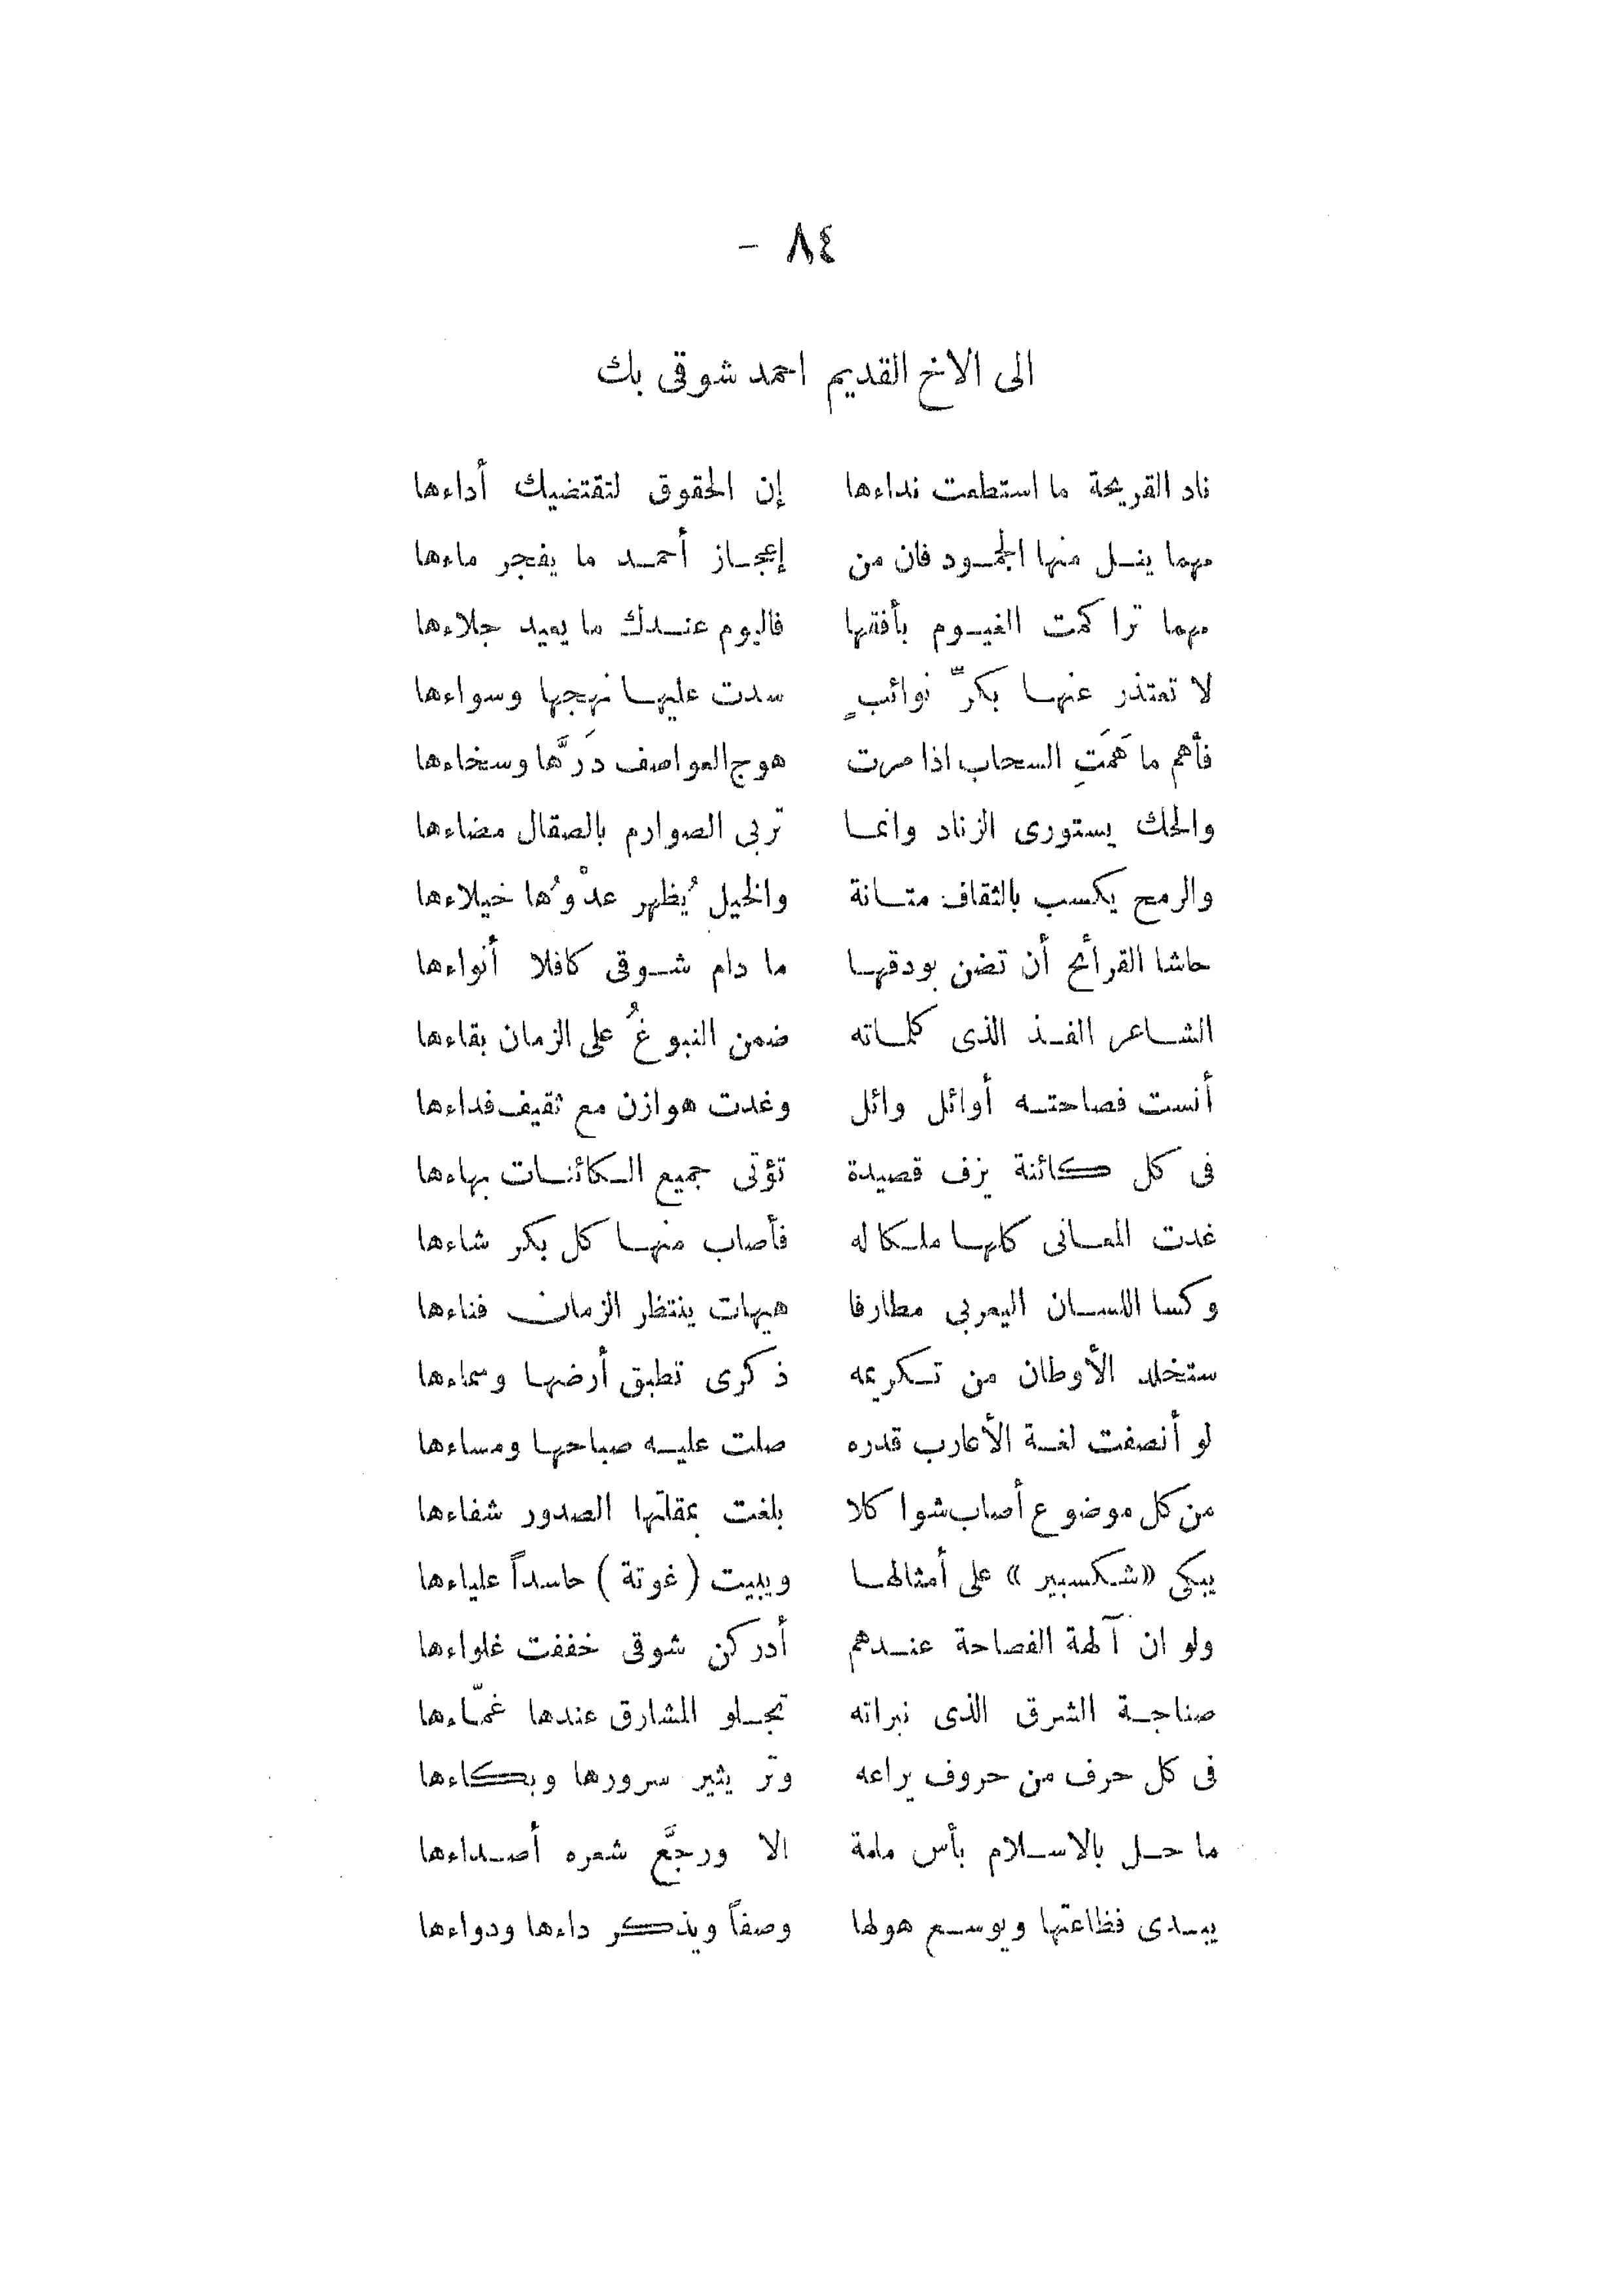 ٨٤ -
الى الاخ القديم احمد شوقى بك
ناد القريحة ما استطعت نداءها إن الحقوق لتقتضيك أداءها
مهما ينل منها الجمود فان من إعجاز أحمد ما يفجر ماءها
مهما تراكمت الغيوم بأفقها فاليوم عندك ما يعيد جلاءها
لا تعتذر عنها بكرِّ نوائبٍ سدت عليها نهجها وسواءها
فأهم ما هَمَتِ السحاب اذا مرت هوج العواصف دَرَّها وسخاءها
والحك يستورى الزناد وانما تربى الصوارم بالصقال مضاءها
والرمح يكسب بالثقاف متانة والخيل يُظهر عدْوُها خيلاءها
حاشا القرائح أن تضن بودقها ما دام شوقى كافلا أنواءها
الشاعر الفذ الذى كلماته ضمن النبوغُ على الزمان بقاءها
أنست فصاحته أوائل وائل وغدت هوازن مع ثقيف فداءها
فى كل كائنة يزف قصيدة تؤتى جميع الكائنات بهاءها
غدت المعانى كلها ملكا له فأصاب منها كل بكر شاءها
وكسا اللسان اليعربى مطارفا هيهات ينتظر الزمان فناءها
ستخلد الأوطان من تكريمه ذكرى تطبق أرضها وسماءها
لو أنصفت لغة الأعارب قدره صلت عليه صباحها ومساءها
من كل موضوع أصاب شواكلا بلغت بمقلتها الصدور شفاءها
يبكى «شكسبير» على أمثالها ويبيت (غوتة) حاسداً علياءها
ولو ان آلهة الفصاحة عندهم أدركن شوقى خففت غلواءها
صناجة الشرق الذى نبراته تجلو المشارق عندها غمّاءها
فى كل حرف من حروف يراعه وتر يثير سرورها وبكاءها
ما حل بالاسلام بأس ملمة الا ورجَّع شعره أصداءها
يبدى فظاعتها ويوسع هولها وصفاً ويذكر داءها ودواءها